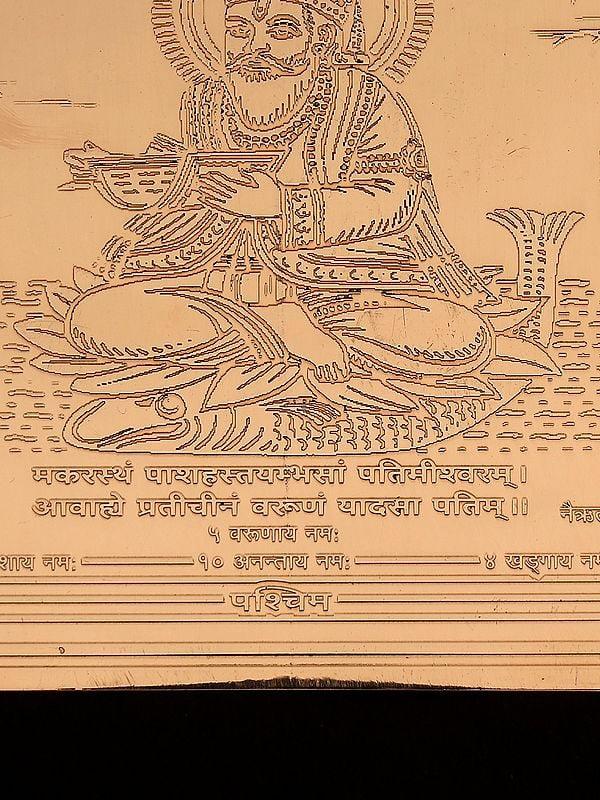 मकरस्थं पाशहस्तयम्भसां पतिमीश्वरम्।
आवाह्ये प्रतीचीनं वरूणं यादसा पतिम्॥
नैऋत
५ वरूणाय नमः
शाय नमः १० अनन्ताय नमः ४ खड्गाय नम
पश्चिम